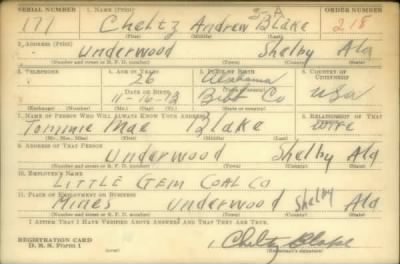 SERIAL NUMBER 1. NAME (Print) ORDER NUMBER
S-A
177 Cheltz Andrew Blake 218
(First) (Middle) (Last)
2. ADDRESS (Print)
Underwood Shelby Ala
(Number and street or R. F. D. number) (Town) (County) (State)
3. TELEPHONE 4. AGE IN YEARS 5. PLACE OF BIRTH 6. COUNTRY OF CITIZENSHIP
26 Alabama
DATE OF BIRTH Bibb Co USA
11-16-13
(Exchange) (Number) (Mo.) (Day) (Yr.) (State or country)
7. NAME OF PERSON WHO WILL ALWAYS KNOW YOUR ADDRESS 8. RELATIONSHIP OF THAT PERSON
Tommie Mae Blake Wife
(Mr., Mrs., Miss) (First) (Middle) (Last)
9. ADDRESS OF THAT PERSON
Underwood Shelby Ala
(Number and street or R. F. D. number) (Town) (County) (State)
10. EMPLOYER'S NAME
LITTLE GEM COAL CO
11. PLACE OF EMPLOYMENT OR BUSINESS
Mines Underwood Shelby Ala
(Number and street or R. F. D. number) (Town) (County) (State)
I AFFIRM THAT I HAVE VERIFIED ABOVE ANSWERS AND THAT THEY ARE TRUE.
REGISTRATION CARD
D. S. S. Form 1
Cheltz Blake
(Registrant's signature)